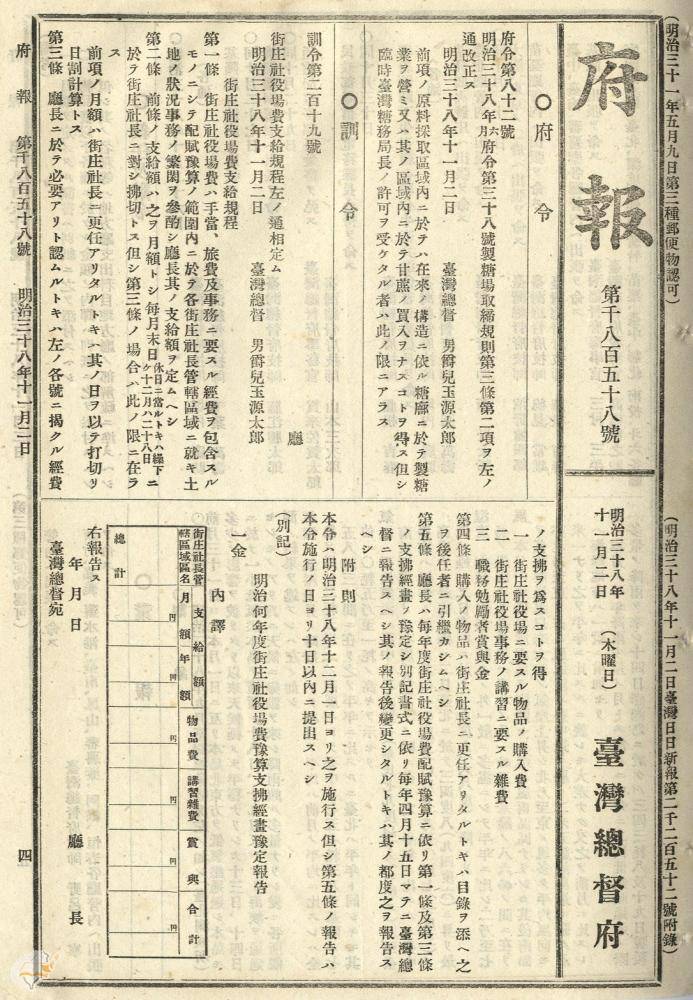 (明治三十一年五月九日第三種郵便物認可)
(明治三十八年十一月二日臺灣日日新報第二千二百五十二號附錄)
府報
第千八百五十八號
明治三十八年
十一月二日
(木曜日)
臺灣總督府
○府令
府令第八十二號
明治三十八年六月府令第三十八號製糖場取締規則第三條第二項ヲ左ノ
通改正ス
明治三十八年十一月二日
臺灣總督 男爵兒玉源太郎
前項ノ原料採取區域內ニ於テハ在來ノ構造ニ依ル糖廍ニ於テ製糖
業ヲ營ミ又ハ其ノ區域內ニ於テ甘蔗ノ買入ヲナスコトヲ得ス但シ
臨時臺灣糖務局長ノ許可ヲ受ケタル者ハ此ノ限ニアラス
○訓令
訓令第二百十九號
廳
街庄社役場費支給規程左ノ通相定ム
明治三十八年十一月二日
臺灣總督 男爵兒玉源太郎
街庄社役場費支給規程
第一條 街庄社役場費ハ手當、旅費及事務ニ要スル經費ヲ包含スル
モノニシテ配賦豫算ノ範圍內ニ於テ各街庄社長管轄區域ニ就キ土
地ノ狀況事務ノ繁閑ヲ參酌シ廳長其ノ支給額ヲ定ムヘシ
第二條 前條ノ支給額ハ之ヲ月額トシ每月末日休日ニ當ルトキハ繰下ニケ十二月ハ二十八日
於テ街庄社長ニ對シ拂切トス但シ第三條ノ場合ハ此ノ限ニ在ラ
ス
前項ノ月額ハ街庄社長ニ更任アリタルトキハ其ノ日ヲ以テ打切リ
日割計算トス
第三條 廳長ニ於テ必要アリト認ムルトキハ左ノ各號ニ揭クル經費
ノ支拂ヲ爲スコトヲ得
一 街庄社役場ニ要スル物品ノ購入費
二 街庄社役場事務ノ講習ニ要スル雜費
三 職務勉勵者賞與金
第四條 購入ノ物品ハ街庄社長ニ更任アリタルトキハ目錄ヲ添ヘ之
ヲ後任者ニ引繼カシムヘシ
第五條 廳長ハ每年度街庄社役場費配賦豫算ニ依リ第一條及第三條
ノ支拂經畫ノ豫定シ別記書式ニ依リ每年四月十五日マテニ臺灣總
督ニ報告スヘシ其ノ報告後變更シタルトキハ其ノ都度之ヲ報告ス
ヘシ
附則
本令ハ明治三十八年十二月一日ヨリ之ヲ施行ス但シ第五條ノ報告ハ
本令施行ノ日ヨリ十日以內ニ提出スヘシ
(別記)
明治何年度街庄社役場費豫算支拂經畫豫定報告
一金
內譯
街庄社長管轄區域名
支給額
月額
年額
物品費
講習雜費
賞與
合計
円
円
円
円
円
總計
右報告ス
年月日
廳長
臺灣總督宛
府報 第千八百五十八號 明治三十八年十一月二日
四